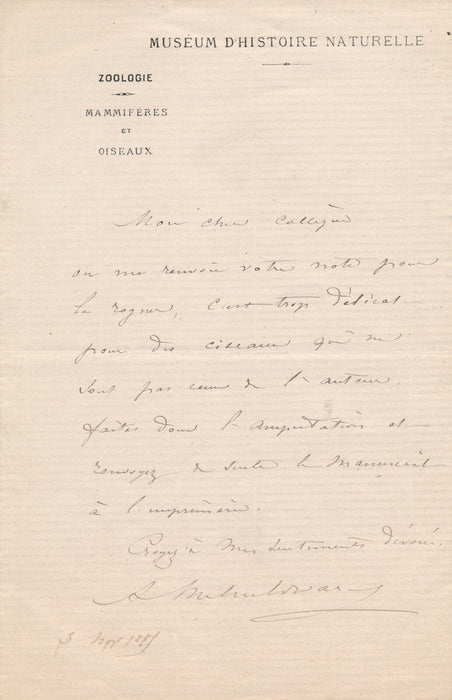 MUSÉUM D'HISTOIRE NATURELLE
ZOOLOGIE
MAMMIFÈRES
ET
OISEAUX
Mon cher Collègue
on me renvoie votre note pour
la rogner, C'est trop délicat
pour des ciseaux qui ne
sont pas ceux de l'auteur.
faites donc l'amputation et
renvoyez de suite le manuscrit
à l'imprimerie.
Croyez à mes sentiments dévoués.
A Milne Edwards
3 Nov